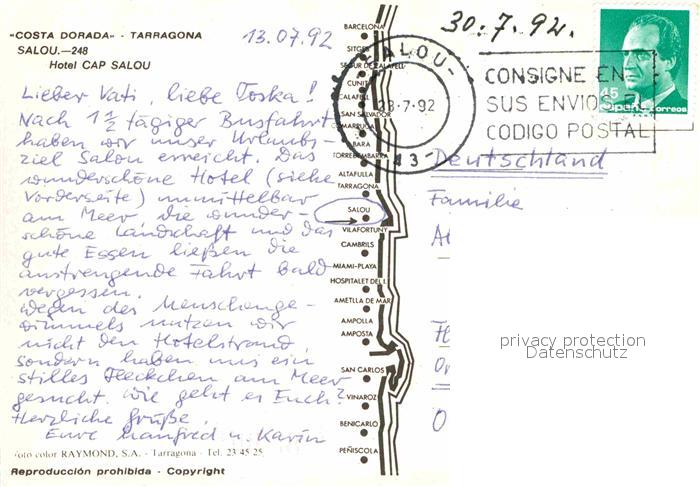 "COSTA DORADA" - TARRAGONA
SALOU.—248
Hotel CAP SALOU
13.07.92
30.7.92.
Lieber Vati, liebe Toska!
Nach 1 1/2 tägiger Busfahrt
haben wir unser Urlaubs-
ziel Salou erreicht. Das
wunderschöne Hotel (siehe
Vorderseite) unmittelbar
am Meer die wunder-
schöne Landschaft und das
gute Essen ließen die
anstrengende Fahrt bald
vergessen.
Wegen des Menschenge-
wimmels nutzen wir
nicht den Hotelstrand,
sondern haben uns ein
stilles Fleckchen am Meer
gesucht. Wie geht es Euch?
Herzliche Grüße
Eure Manfred u. Karin
foto color RAYMOND, S.A. - Tarragona - Tel. 23 45 25
Reproducción prohibida - Copyright
BARCELONA
SITGES
SEGUR DE CALAFELL
CUNIT
CALAFELL
SAN SALVADOR
COMARRUGA
BARA
TORREDEMBARRA
ALTAFULLA
TARRAGONA
SALOU
VILAFORTUNY
CAMBRILS
MIAMI-PLAYA
HOSPITALET DEL I.
AMETLLA DE MAR
AMPOLLA
AMPOSTA
SAN CARLOS
VINAROZ
BENICARLO
PEÑISCOLA
SALOU-
28-7-92
43-
CONSIGNE EN
SUS ENVIOS EL
CODIGO POSTAL
45
España correos
Deutschland
Familie
privacy protection
Datenschutz